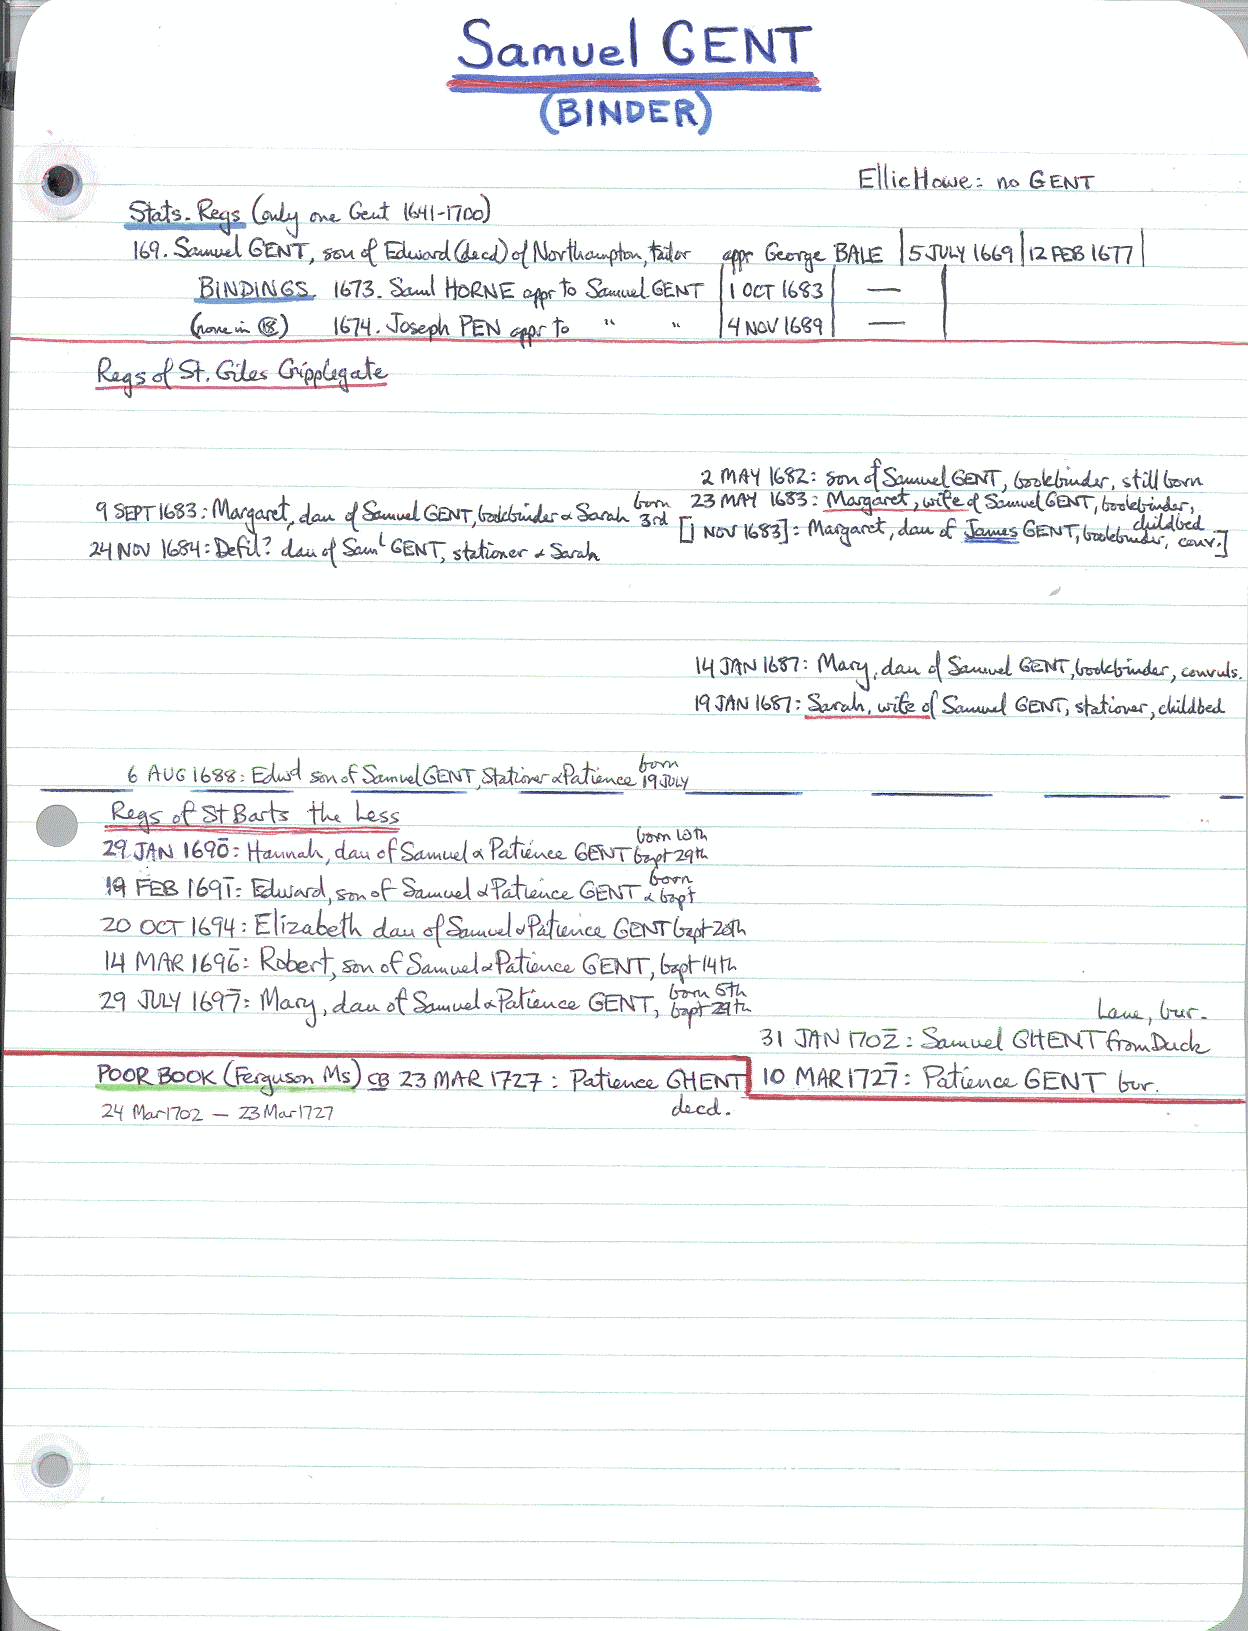 Samuel GENT
(BINDER)
Ellic Howe: no GENT
Stats. Regs (only one Gent 1641-1700)
169. Samuel GENT, son of Edward (decd) of Northampton, tailor appr George BALE | 5 JULY 1669 | 12 FEB 1677 |
BINDINGS 1673. Saml HORNE appr to Samuel GENT | 1 OCT 1683 | — |
(none in 18) 1674. Joseph PEN appr to " " | 4 NOV 1689 | — |
Regs of St. Giles Cripplegate
2 MAY 1682: son of Samuel GENT, bookbinder, still born
23 MAY 1683: Margaret, wife of Samuel GENT, bookbinder, childbed
9 SEPT 1683: Margaret, dau of Samuel GENT, bookbinder & Sarah born 3rd
[1 NOV 1683]: Margaret, dau of James GENT, bookbinder, conv.]
24 NOV 1684: Defil? dau of Saml GENT, stationer & Sarah
14 JAN 1687: Mary, dau of Samuel GENT, bookbinder, convuls.
19 JAN 1687: Sarah, wife of Samuel GENT, stationer, childbed
6 AUG 1688: Edwd son of Samuel GENT, Stationer & Patience born 19 JULY
Regs of St Barts the Less
29 JAN 1690: Hannah, dau of Samuel & Patience GENT born 10th bapt 29th
19 FEB 1691: Edward, son of Samuel & Patience GENT born & bapt
20 OCT 1694: Elizabeth dau of Samuel & Patience GENT bapt 20th
14 MAR 1696: Robert, son of Samuel & Patience GENT, bapt 14th
29 JULY 1697: Mary, dau of Samuel & Patience GENT, born 5th bapt 29th
31 JAN 1702: Samuel GHENT from Duck Lane, bur.
POOR BOOK (Ferguson Ms) CB 23 MAR 1727: Patience GHENT decd.
10 MAR 1727: Patience GENT bur.
24 Mar 1702 — 23 Mar 1727